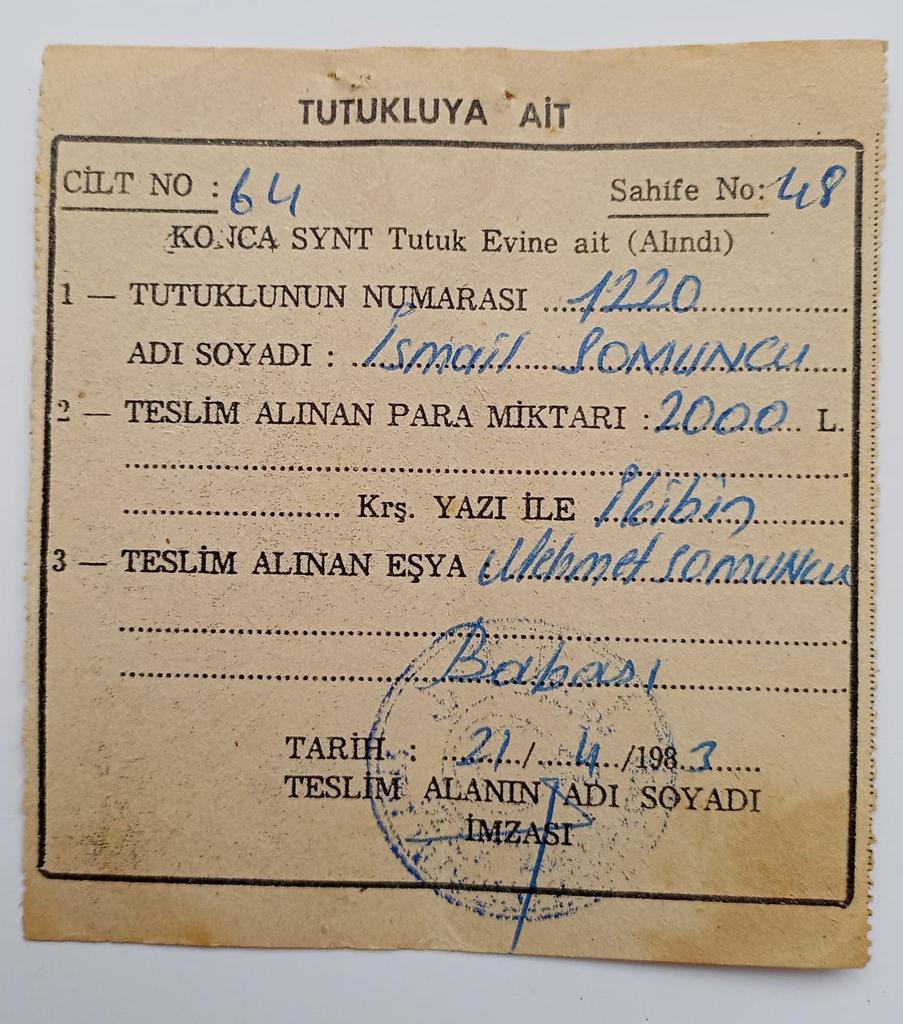 TUTUKLUYA AİT
CİLT NO : 64 Sahife No: 48
KONCA SYNT Tutuk Evine ait (Alındı)
1 — TUTUKLUNUN NUMARASI ...1220...
ADI SOYADI : İsmail SOMUNCU
2 — TESLİM ALINAN PARA MİKTARI : 2000 L.
Krş. YAZI İLE İkibin
3 — TESLİM ALINAN EŞYA Mehmet SOMUNCU
Babası
TARİH : 21/4/1983
TESLİM ALANIN ADI SOYADI
İMZASI